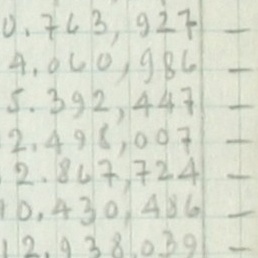 0.763,927 —
4.060,986 —
5.392,447 —
2.498,007 —
2.867,724 —
10.430,486 —
12.938,039 —